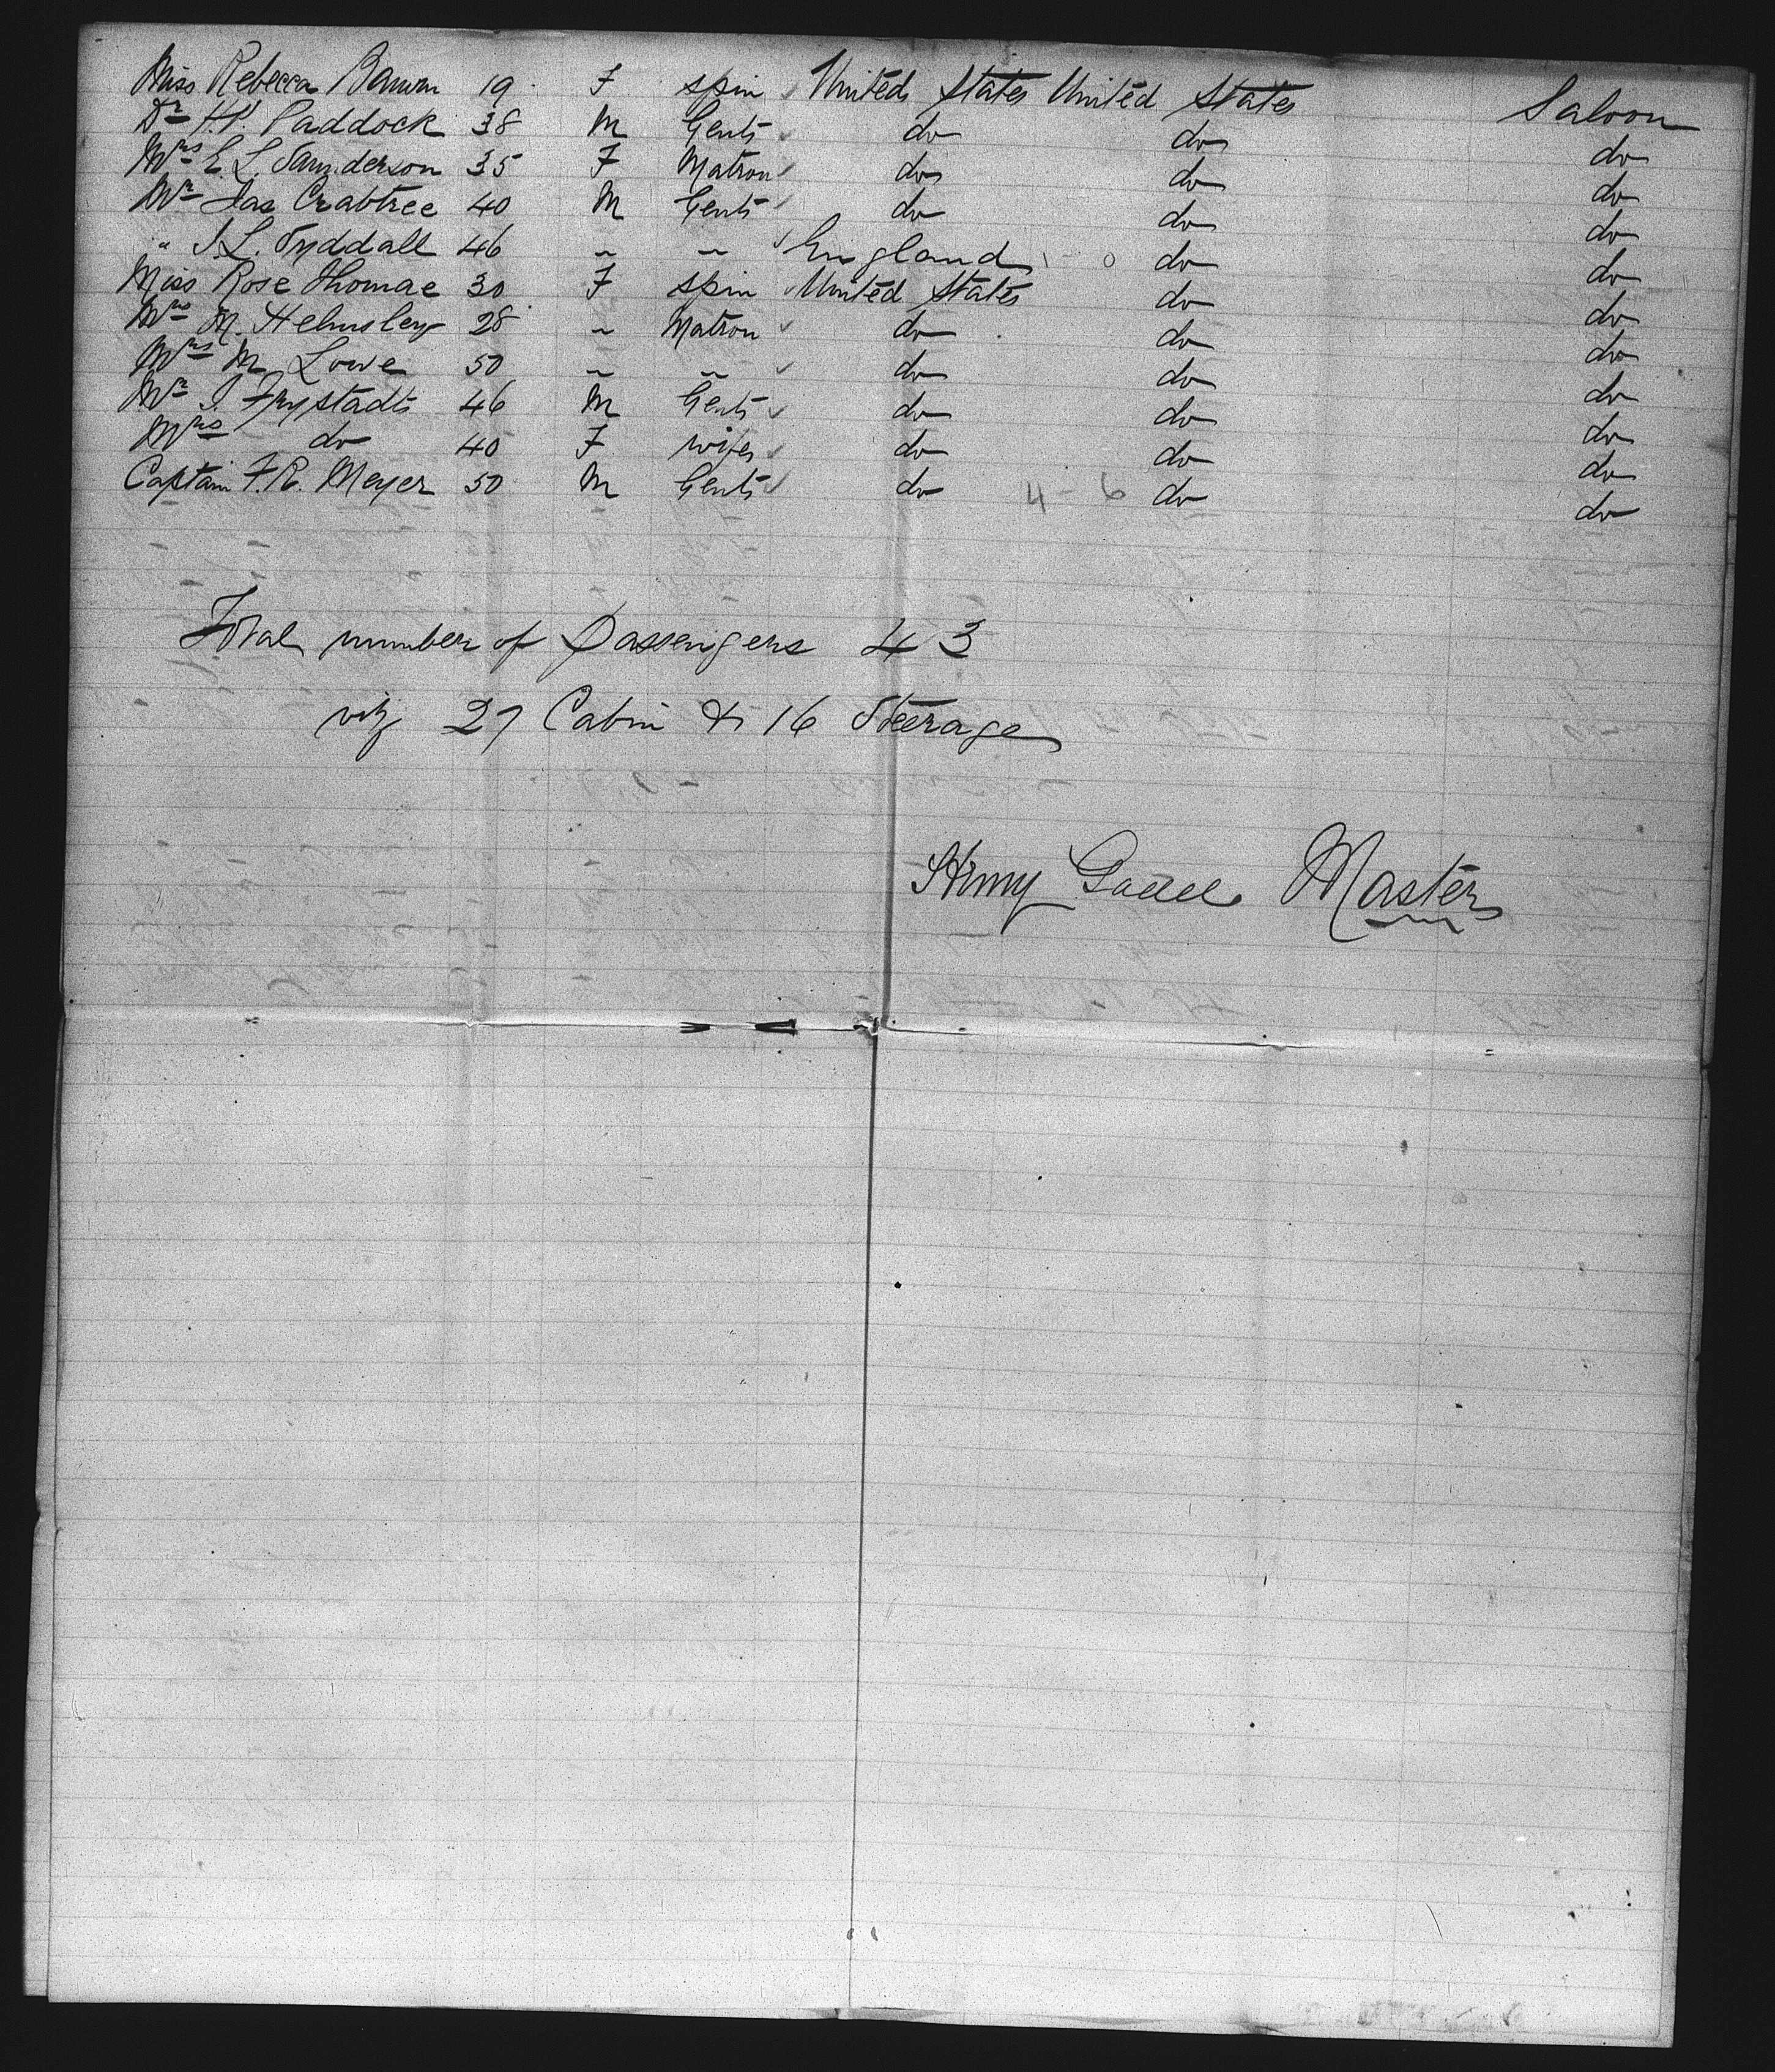 Miss Rebecca 19 F spin United States United States Saloon
Dr H.P. Paddock 38 M Gent do do do
Mrs E. L. Saunderson 35 F Matron do do do
Mr Jas Crabtree 40 M Gent do do do
" J. L. Tyddall 46 " " England 0 do do
Miss Rose Thomae 30 F spin United States do do
Mrs M. Helmsley 28 " Matron do do do
Mrs M Lowe 50 " " do do do
Mr J. Frystadt 46 M Gent do do do
Mrs do 40 F wife do do do
Captain F. R. Meyer 50 M Gent do 4 - 6 do do
Total number of Passengers 43
viz 27 Cabin & 16 Steerage
Henry Master